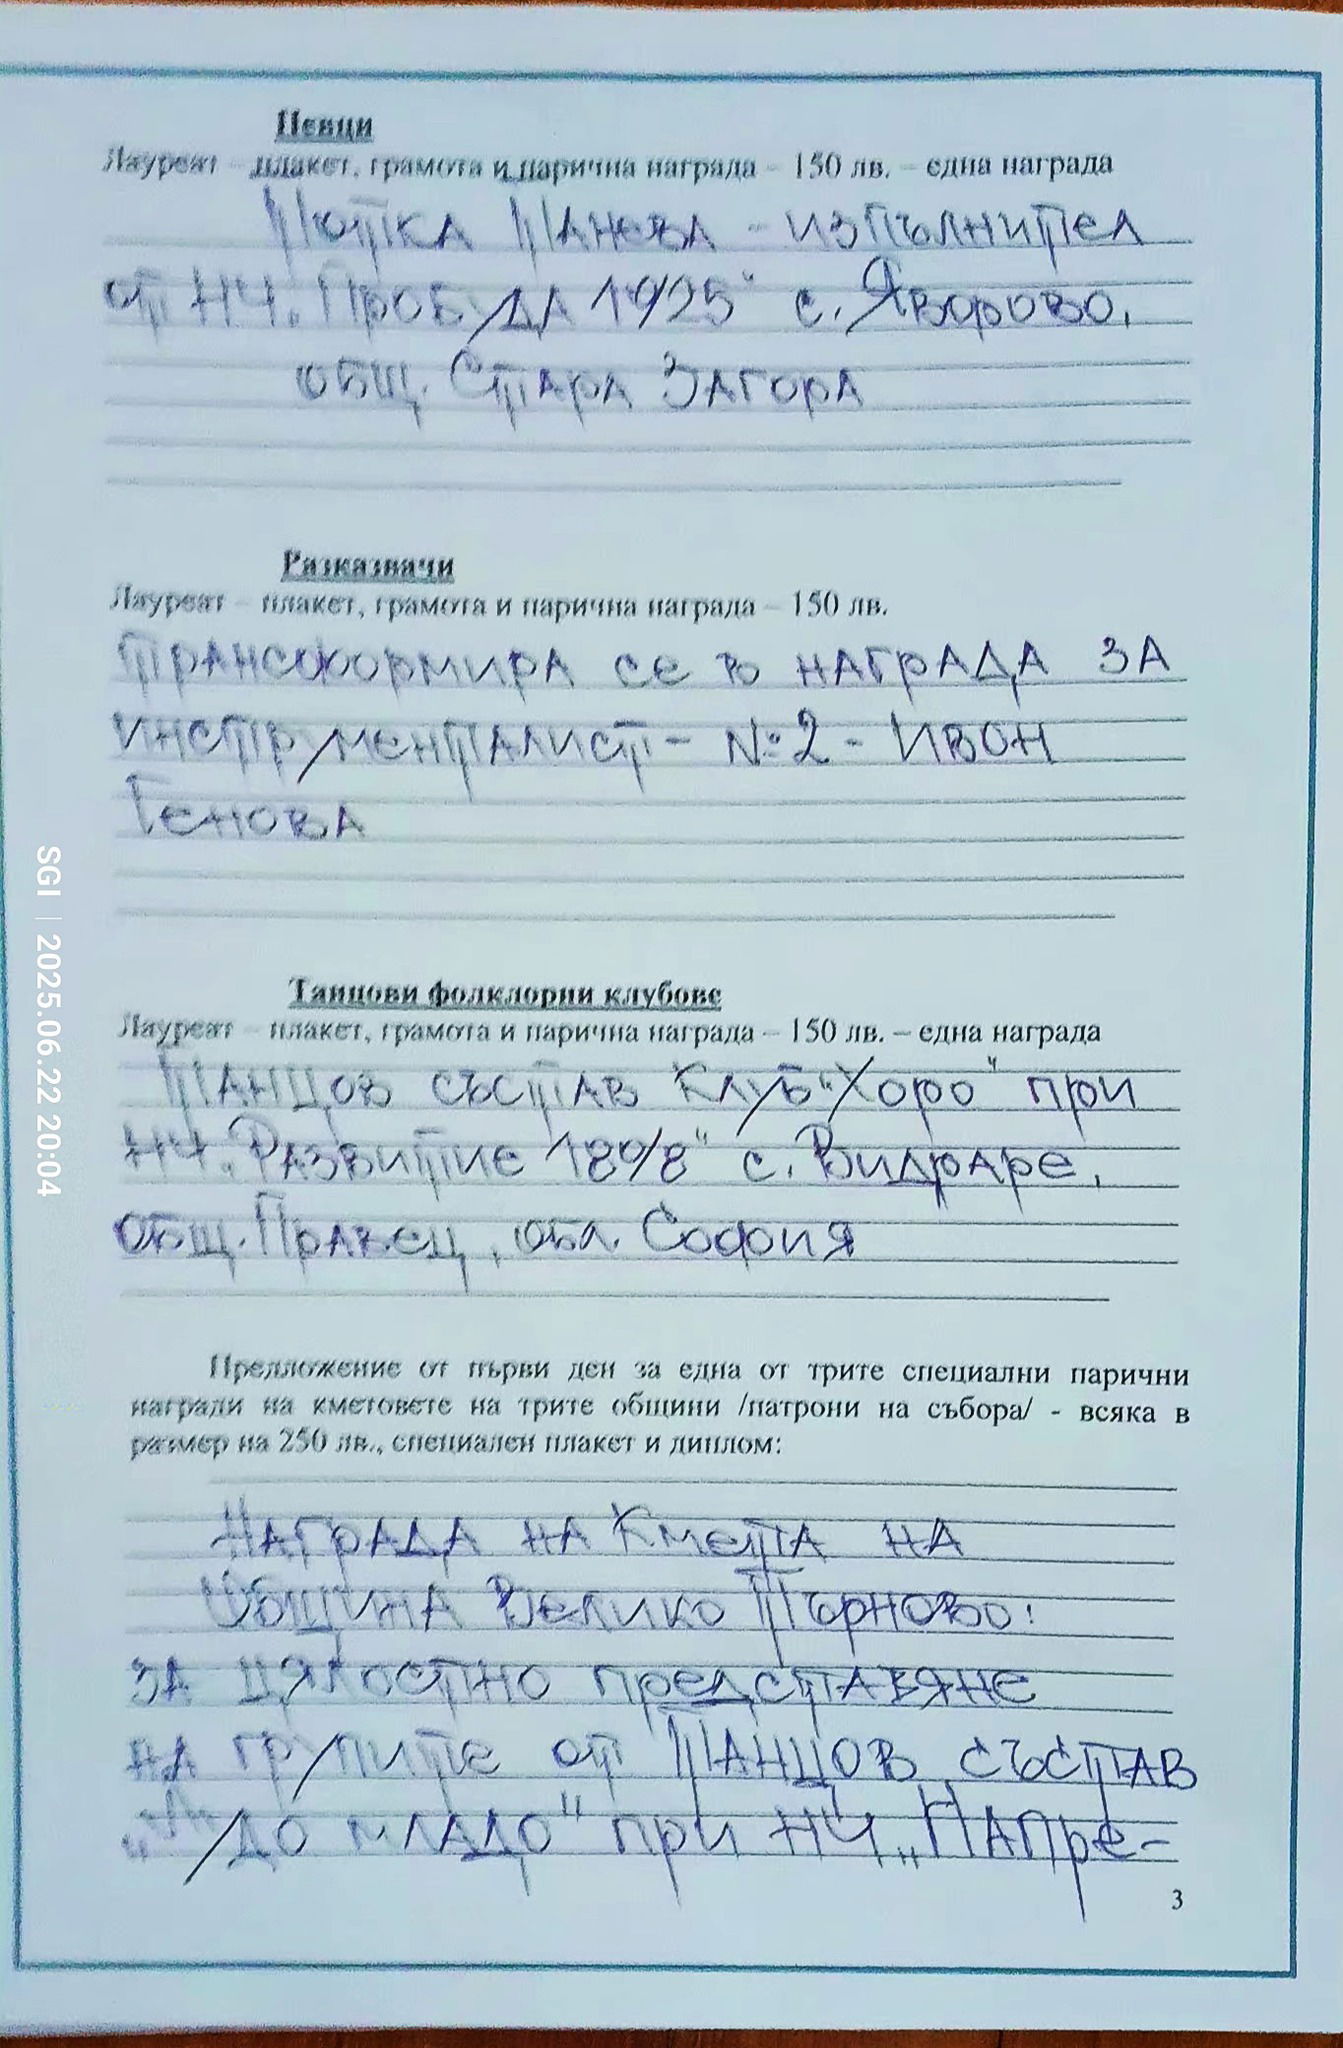 Певци
Лауреат – плакет, грамота и парична награда – 150 лв. – една награда
ТАНЕВА - ИЗПЪЛНИТЕЛ
ОТ НЧ „ПРОБУДА 1925" с. ЯВОРОВО,
ОБЩ. СТАРА ЗАГОРА
Разказвачи
Лауреат – плакет, грамота и парична награда – 150 лв.
ТРАНСФОРМИРА СЕ В НАГРАДА ЗА
ИНСТРУМЕНТАЛИСТ - №2 - ИВОН
ГЕНОВА
Танцови фолклорни клубове
Лауреат – плакет, грамота и парична награда – 150 лв. – една награда
ТАНЦОВ СЪСТАВ КЛУБ "ХОРО" ПРИ
НЧ „РАЗВИТИЕ 1898" с. ВИДРАРЕ,
ОБЩ. ПРАВЕЦ, ОБЛ. СОФИЯ
Предложение от първи ден за една от трите специални парични
награди на кметовете на трите общини /патрони на събора/ - всяка в
размер на 250 лв., специален плакет и диплом:
НАГРАДА НА КМЕТА НА
ОБЩИНА ВЕЛИКО ТЪРНОВО:
ЗА ЦЯЛОСТНО ПРЕДСТАВЯНЕ
НА ГРУПИТЕ ОТ ТАНЦОВ СЪСТАВ
„ЛУДО МЛАДО" ПРИ НЧ „НАПРЕ-
3
SGI | 2025.06.22 20:04